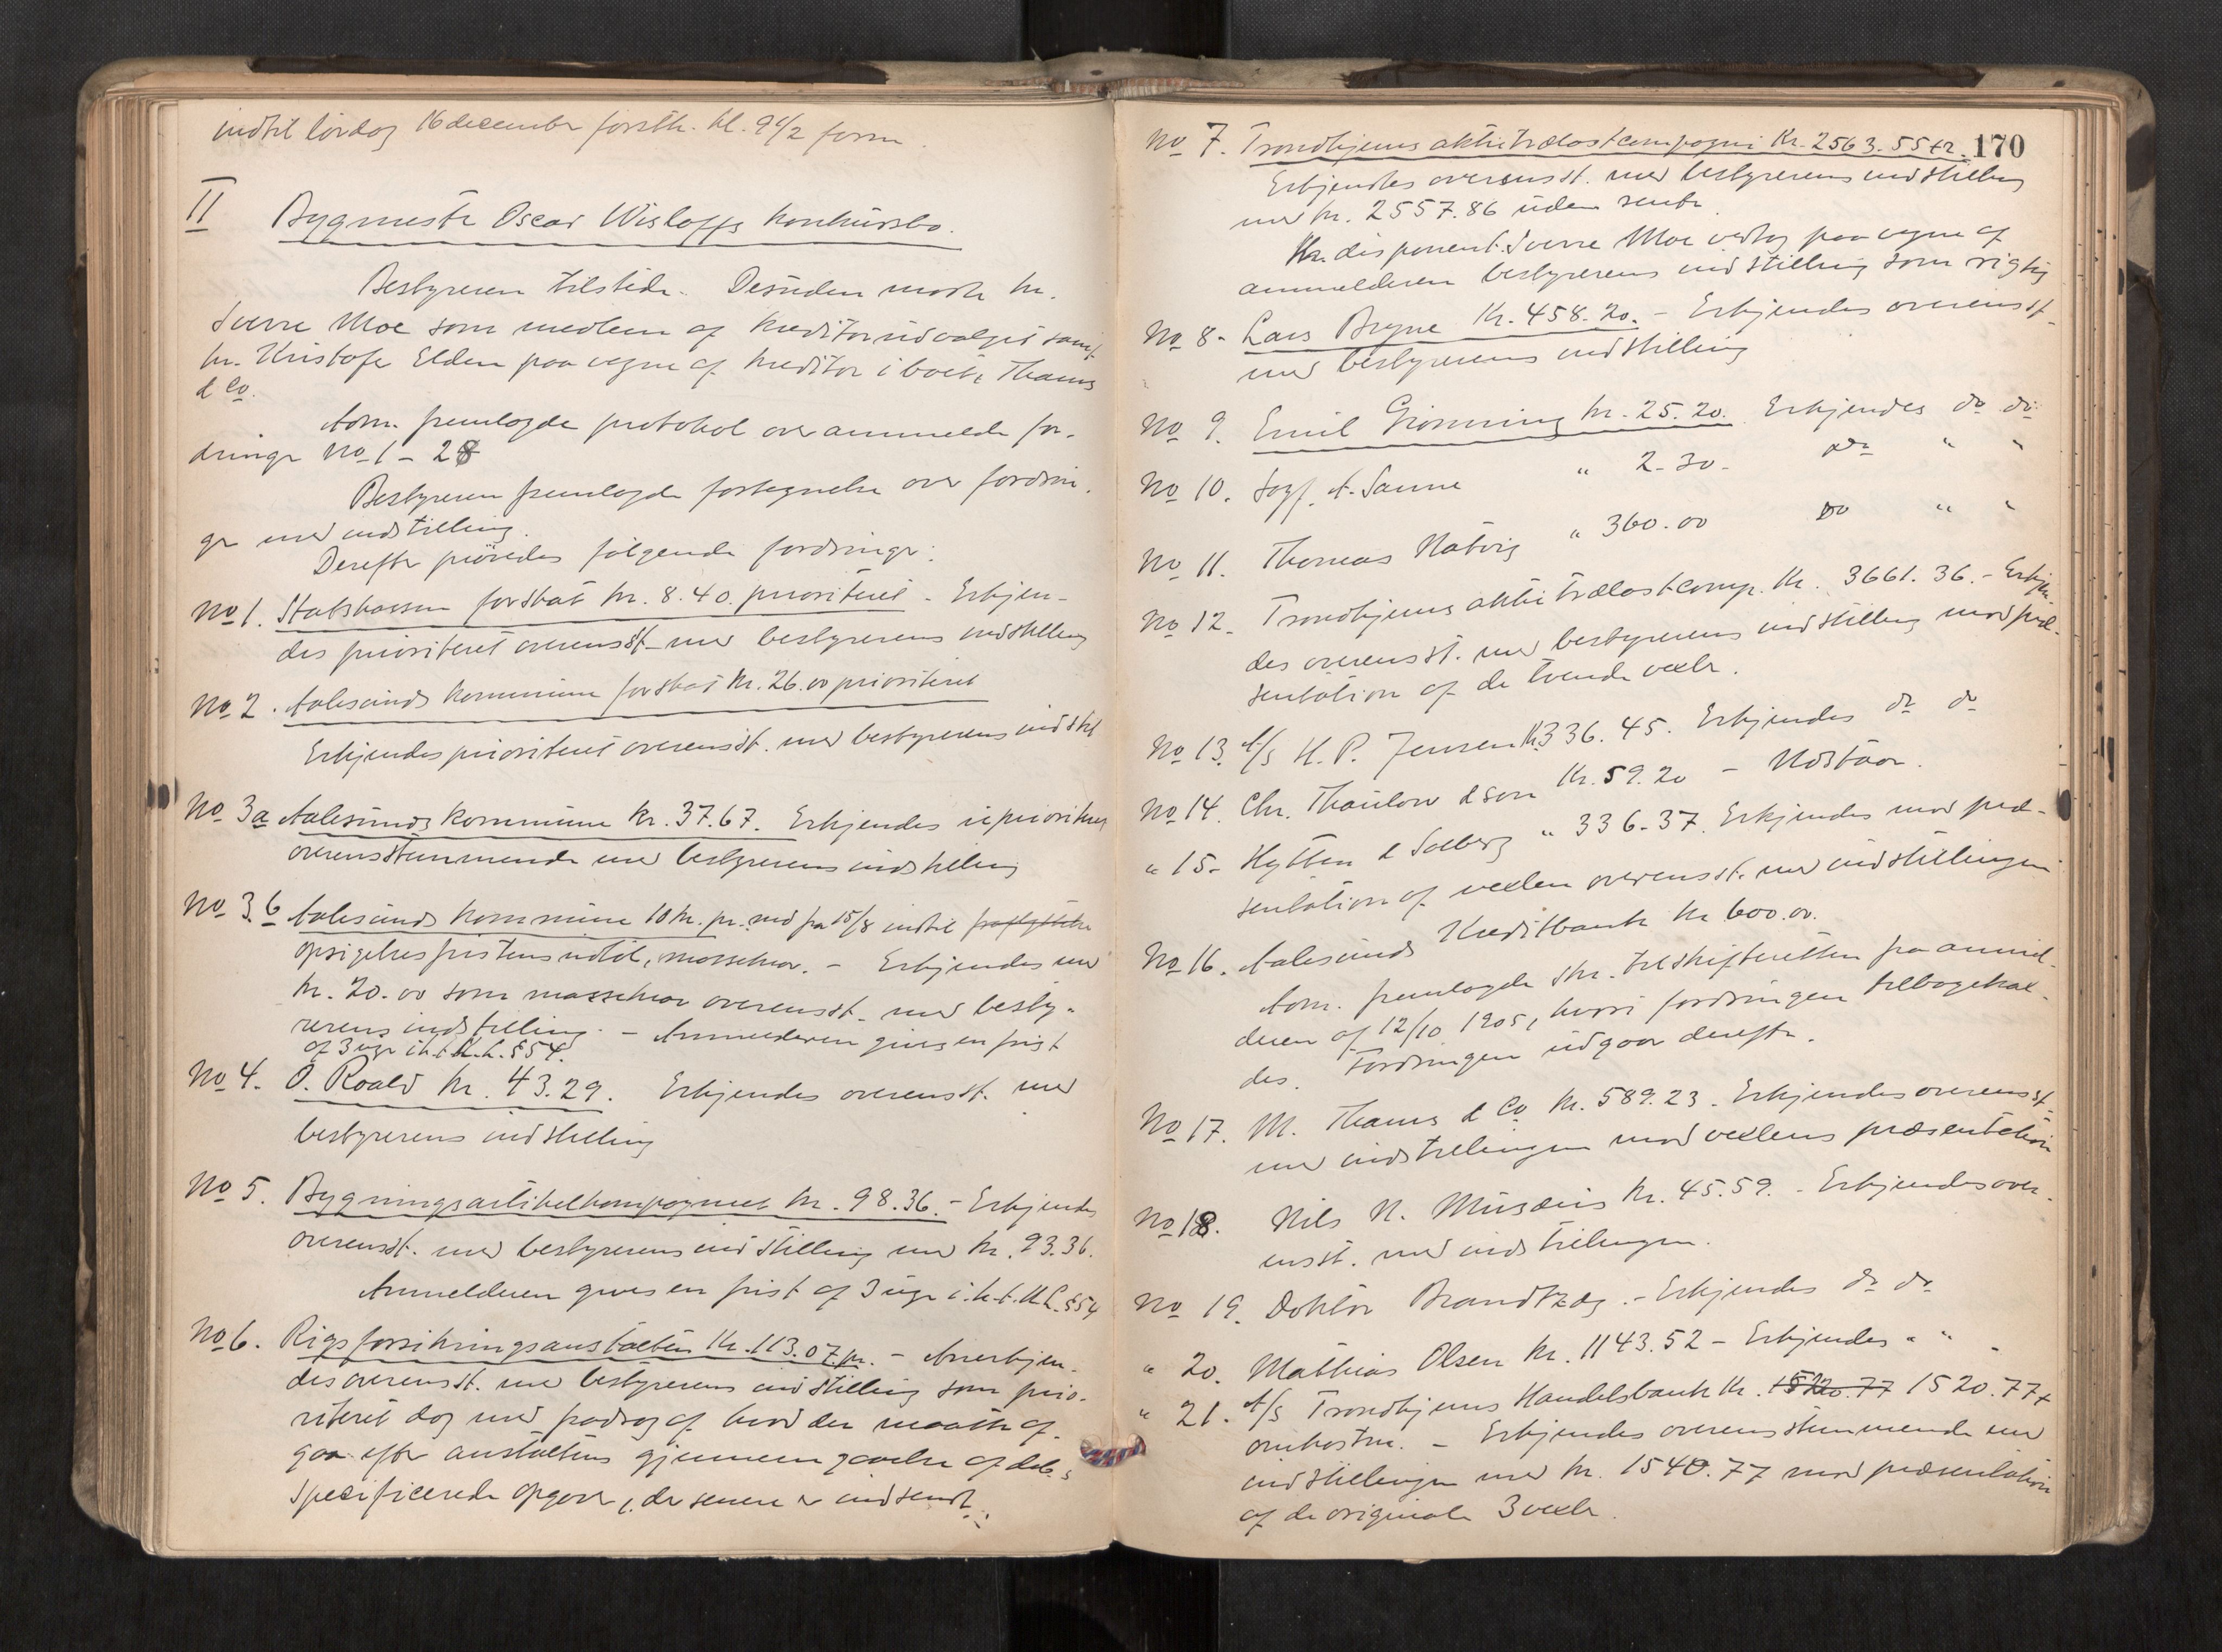 indtil lördag 16 december förstk. kl. 9 1/2 form.
II Bygmester Oscar Wisløffs konkursbo.
Bestyreren tilstede. Desuden mødte hr.
Sverre Moe som medlem af kreditorudvalget samt
hr. Kristofer Elden paa vegne af kreditor i boet, Thams
& Co.
Adm. fremlagde protokol over anmeldte for-
dringer No 1 - 28
Bestyreren fremlagde fortegnelse over fordrin-
ger med indstilling.
Derefter prövedes følgende fordringer:
No 1. Statskassen for skat kr. 8.40. prioriteret - Erkjen-
des prioriteret overensst. med bestyrerens indstilling
No 2. Aalesunds kommune for skat kr. 26.00 prioriteret
Erkjendes prioriteret overensst. med bestyrerens indstil
No 3a Aalesunds kommune kr. 37.67. Erkjendes uprioriteret
overensstemmende med bestyrerens indstilling
No 3.b Aalesunds kommune 10 kr. pr. md fra 15/8 indtil fraflyttelse
opsigelsesfristens udløb, massekrav. - Erkjendes med
kr. 20.00 som massekrav overensst. med besty-
rerens indstilling. - Anmelderen gives en frist
af 3 uger i h. t. K. L. § 54.
No 4. O. Roald kr. 43.29. Erkjendes overensst. med
bestyrerens indstilling
No 5. Bygningsartikelkompagniet kr. 98.36. - Erkjendes
overensst. med bestyrerens indstilling med kr. 93.36.
Anmelderen gives en frist af 3 uger i. h. t. K L. § 54
No 6. Rigsforsikringsanstalten Kr. 113.07. pr. - Anerkjen-
des overensst. med bestyrerens indstilling som prio-
riteret dog med fradrag af hvad der maatte af-
gaa efter anstaltens gjennemgaaelse af de
specificerede opgaver, der senere er indsendt.
170
No 7. Trondhjems aktietrælastcompagni Kr. 2563.55 + r.
Erkjendtes overensst. med bestyrerens indstilling
med kr. 2557.86 uden rente.
Hr. disponent Sverre Moe vedtog paa vegne af
anmelderen bestyrerens indstilling som rigtig
No 8 - Lars Bryne Kr. 458.20. - Erkjendes overensst.
med bestyrerens indstilling
No 9. Emil Grønning kr. 25.20. Erkjendes do do
No 10. Sagf. A. Sanne " 2.30. do " "
No 11. Thomas Natvig " 360.00 Do " "
No 12. Trondhjems aktie trælastcomp. Kr. 3661.36. - Erkjen-
des overensst. med bestyrerens indstilling mod præ-
sentation af de tvende vexler.
No 13. A/s H. P. Jensen K. 336.45. Erkjendes do do
No 14. Chr. Thaulow & søn Kr. 59.20 - Udstaar.
" 15. Hytten & Solberg " 336.37. Erkjendes mod præ-
sentation af vexlen overensst. med indstillingen
No 16. Aalesunds Kreditbank Kr 600.00.
Adm. fremlagde skr. til skifteretten fra anmel-
deren af 12/10 1905, hvori fordringen tilbagekal-
des. Fordringen udgaar derefter.
No 17. M. Thams & Co kr. 589.23. Erkjendes overensst.
med indstillingen mod vexlens præsentation
No 18. Nils N. Musæus kr. 45.59. - Erkjendes over-
ensst. med indstillingen.
No 19. Doktor Brandtzæg. - Erkjendes do do
" 20. Mathias Olsen kr. 1143.52 - Erkjendes " "
" 21. A/s Trondhjems Handelsbank Kr. 1520.77 1520.77 +
omkostn. - Erkjendes overensstemmende med
indstillingen med kr. 1540.77 mod præsentation
af de originale 3 vexler.